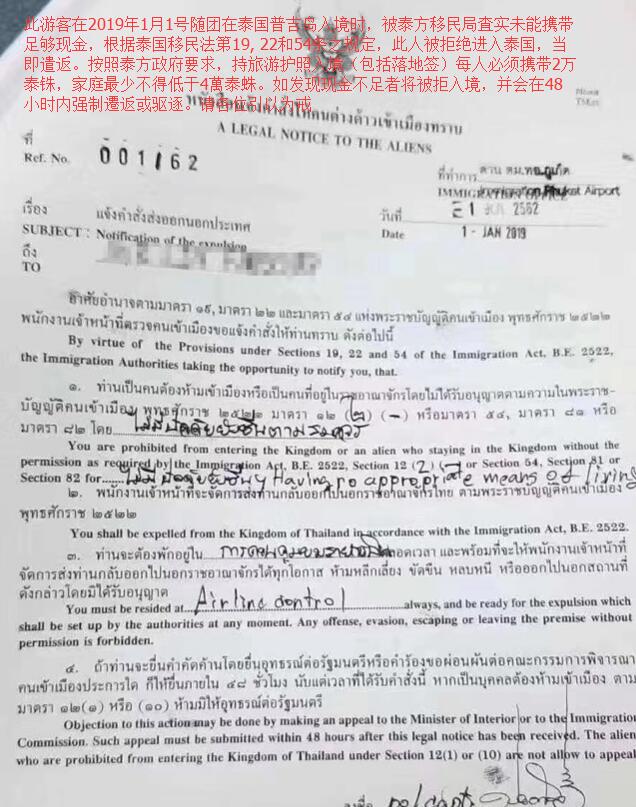 此游客在2019年1月1号随团在泰国普吉岛入境时，被泰方移民局查实未能携带
足够现金，根据泰国移民法第19, 22和54条之规定，此人被拒绝进入泰国，当
即遣返。按照泰方政府要求，持旅游护照入境（包括落地签）每人必须携带2万
泰铢，家庭最少不得低于4萬泰蛛。如发现现金不足者将被拒入境，并会在48
小时内强制遷返或驱逐。请各位引以为戒
หนังสือแจ้งคำสั่งให้คนต่างด้าวเข้าเมืองทราบ
A LEGAL NOTICE TO THE ALIENS
ที่
Ref. No. 001162
ที่ทำการ ด่าน ตม.ทอ.ภูเก็ต
IMMIGRATION OFFICE Immigration Phuket Airport
เรื่อง แจ้งคำสั่งส่งออกนอกประเทศ
วันที่ 2562
SUBJECT : Notification of the expulsion
Date 1 - JAN 2019
ถึง
TO
อาศัยอำนาจตามมาตรา ๑๙, มาตรา ๒๒ และมาตรา ๕๔ แห่งพระราชบัญญัติคนเข้าเมือง พุทธศักราช ๒๕๒๒
พนักงานเจ้าหน้าที่ตรวจคนเข้าเมืองขอแจ้งคำสั่งให้ท่านทราบ ดังต่อไปนี้
By virtue of the Provisions under Sections 19, 22 and 54 of the Immigration Act, B.E. 2522,
the Immigration Authorities taking the opportunity to notify you, that.
๑. ท่านเป็นคนต้องห้ามเข้าเมืองหรือเป็นคนที่อยู่ในราชอาณาจักรโดยไม่ได้รับอนุญาตตามความในพระราช-
บัญญัติคนเข้าเมือง พุทธศักราช ๒๕๒๒ มาตรา ๑๒ (๒) (–) หรือมาตรา ๕๔, มาตรา ๘๑ หรือ
มาตรา ๘๒ โดย ไม่มีปัจจัยยังชีพตามสมควร
You are prohibited from entering the Kingdom or an alien who staying in the Kingdom without the
permission as required by the Immigration Act, B.E. 2522, Section 12 (2) (–) or Section 54, Section 81 or
Section 82 for ไม่มีปัจจัยยังชีพ Having no appropriate means of living
๒. พนักงานเจ้าหน้าที่จะจัดการส่งท่านกลับออกไปนอกราชอาณาจักรไทย ตามพระราชบัญญัติคนเข้าเมือง
พุทธศักราช ๒๕๒๒
You shall be expelled from the Kingdom of Thailand in accordance with the Immigration Act, B.E. 2522.
๓. ท่านจะต้องพักอยู่ใน ตลอดเวลา และพร้อมที่จะให้พนักงานเจ้าหน้าที่
จัดการส่งท่านกลับออกไปนอกราชอาณาจักรได้ทุกโอกาส ห้ามหลีกเลี่ยง ขัดขืน หลบหนี หรือออกไปนอกสถานที่
ดังกล่าวโดยมิได้รับอนุญาต
You must be resided at Airline control always, and be ready for the expulsion which
shall be set up by the authorities at any moment. Any offense, evasion, escaping or leaving the premise without
permission is forbidden.
๔. ถ้าท่านจะยื่นคำคัดค้านโดยยื่นอุทธรณ์ต่อรัฐมนตรีหรือคำร้องขอผ่อนผันต่อคณะกรรมการพิจารณา
คนเข้าเมืองประการใด ก็ให้ยื่นภายใน ๔๘ ชั่วโมง นับแต่เวลาที่ได้รับคำสั่งนี้ หากเป็นบุคคลต้องห้ามเข้าเมือง ตาม
มาตรา ๑๒(๑) หรือ (๑๐) ห้ามมิให้อุทธรณ์ต่อรัฐมนตรี
Objection to this action may be done by making an appeal to the Minister of Interior or to the Immigration
Commission. Such appeal must be submitted within 48 hours after this legal notice has been received. The alien
who are prohibited from entering the Kingdom of Thailand under Section 12(1) or (10) are not allow to appeal
ลงชื่อ